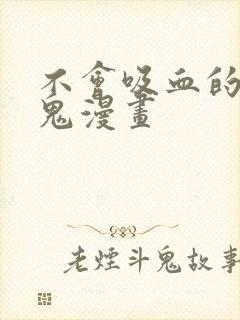 不會吸血的
鬼漫畫
老煙斗鬼故事